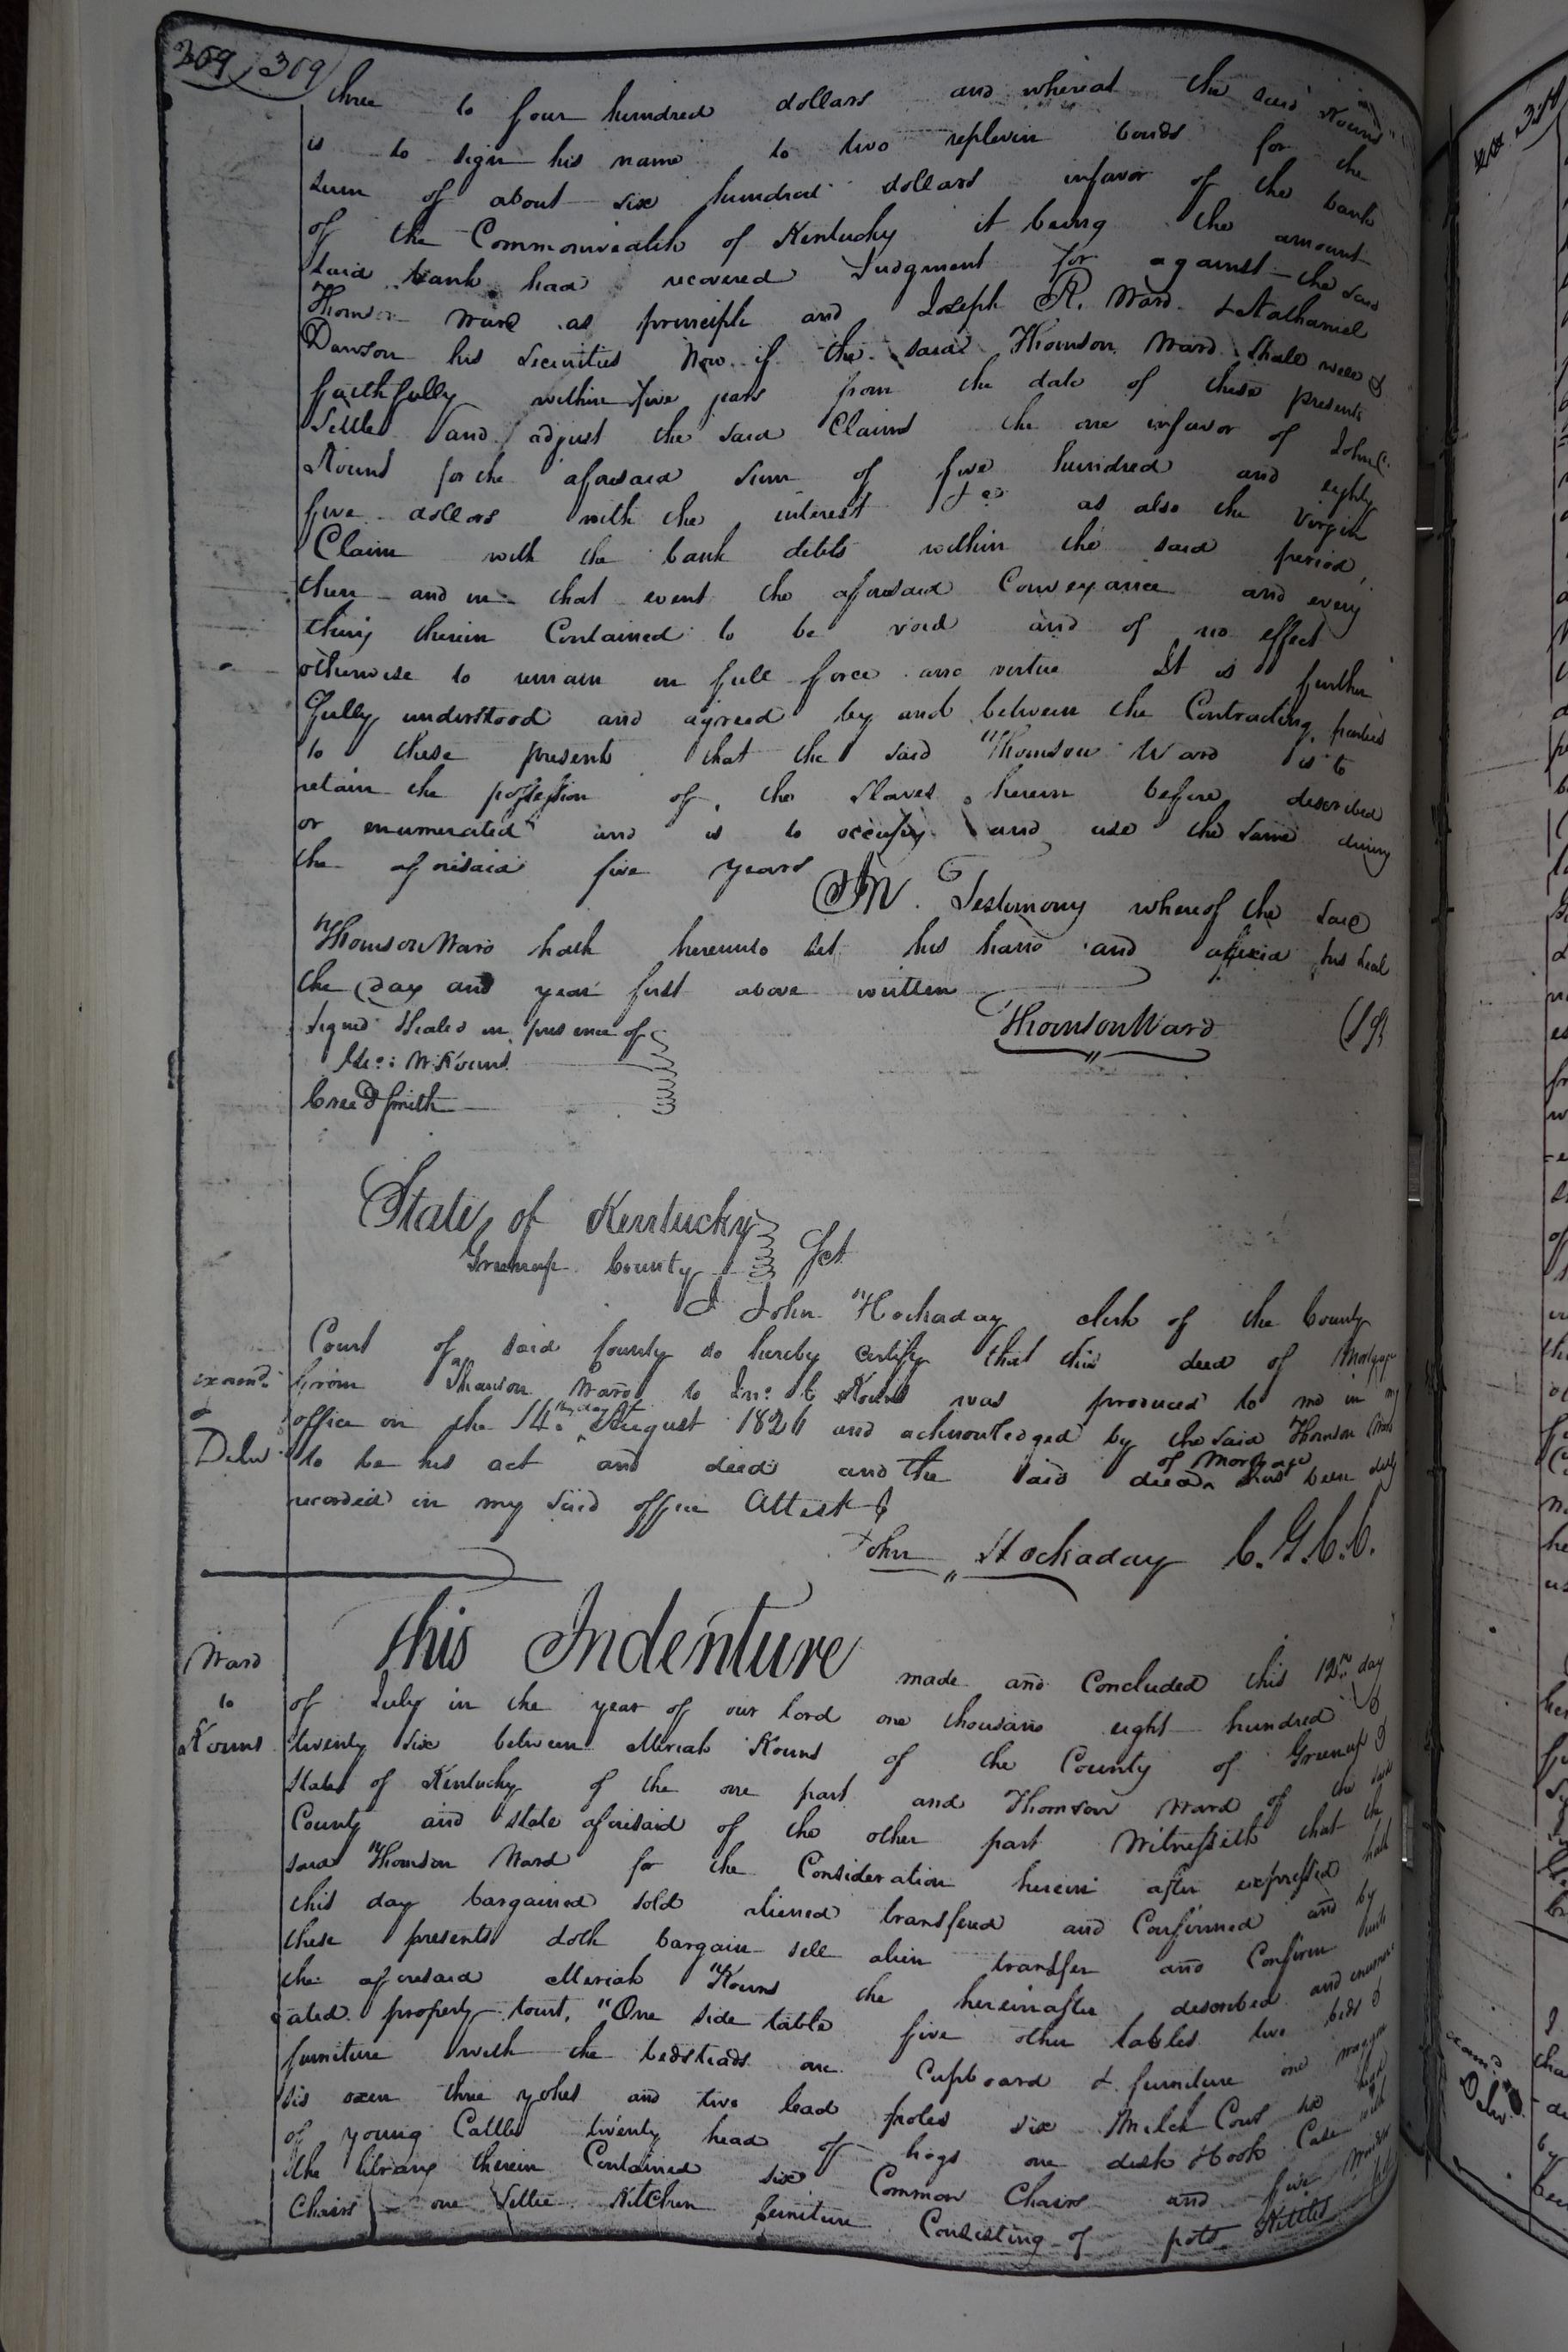 309 309
three to four hundred dollars and whereas the said Kouns
is to sign his name to two replevin bonds for the
sum of about six hundred dollars infavor of the bank
of the Commonwealth of Kentucky it being the amount
said bank had recovered Judgment for against the said
Thomson Ward as principle and Joseph R. Ward & Nathaniel
Dawson his Securities Now if the said Thomson Ward Shall well &
faithfully within five years from the date of these presents
Settle and adjust the said Claims the one infavor of John C.
Kouns for the aforesaid sum of five hundred and eighty
five dollars with the interest &c as also the Virgin
Claim with the bank debts within the said period,
then and in that event the aforesaid Conveyance and every
thing therein Contained to be void and of no effect
otherwise to remain in full force and virtue It is further
fully understood and agreed by and between the Contracting parties
to these presents that the said Thomson Ward is to
retain the possession of the Slaves herein before described
or enumerated and is to occupy and use the same during
the aforesaid five years
In Testimony whereof the said
Thomson Ward hath hereunto set his hand and affixed his seal
the day and year first above written
Signed Sealed in presence of
W. Kouns
Creed Smith
Thomson Ward
State of Kentucky
Greenup County Sct
I John Hockaday clerk of the County
Court of said County do hereby certify that this deed of Mortgage
from Thomson Ward to Jno. C Kouns was produced to me in my
office on the 14th day of August 1826 and acknowledged by the said Thomson Ward
to be his act and deed and the said deed of Mortgage has been duly
recorded in my said office Attest
John Hockaday C.G.C.C.
examd.
&
Deld
Ward
to
Kouns
This Indenture made and Concluded this 12th day
of July in the year of our lord one thousand eight hundred &
twenty six between Meriah Kouns of the County of Greenup &
State of Kentucky of the one part and Thomson Ward of the said
County and state aforesaid of the other part Witnesseth that the
said Thomson Ward for the Consideration herein after expressed hath
this day bargained sold aliened transfered and Confirmed and by
these presents doth bargain sell alien transfer and Confirm unto
the aforesaid Meriah Kouns the hereinafter described and enumer-
ated property towit, "One side table five other tables two beds &
furniture with the bedsteads one Cupboard & furniture one waggon
six oxen three yokes and two lead poles six Milch Cows six head
of young Cattle twenty head of hogs one desk & book Case with
the library therein Contained six Common Chairs and five Windsor
Chairs one Settee Kitchen furniture Consisting of pots Kettles